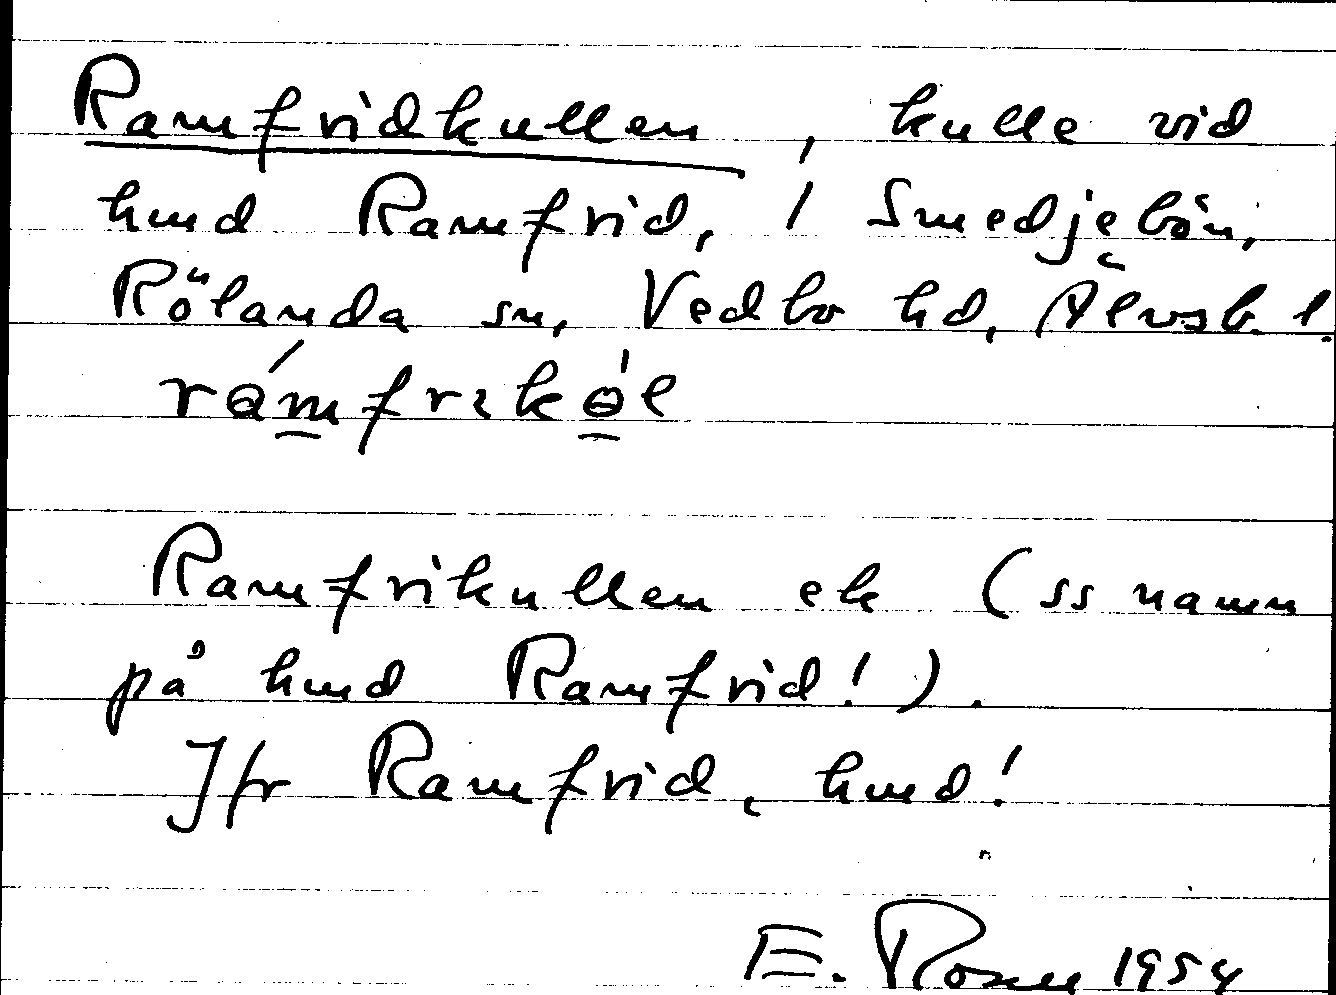 Ramfridkullen, kulle vid
hmd Ramfrid, i Smedjebön,
Rölanda sn, Vedbo hd, Älvsb. l.
Ramfrikullen ek (ss namn
på hmd Ramfrid!).
Jfr Ramfrid, hmd!
E. Rosell 1954